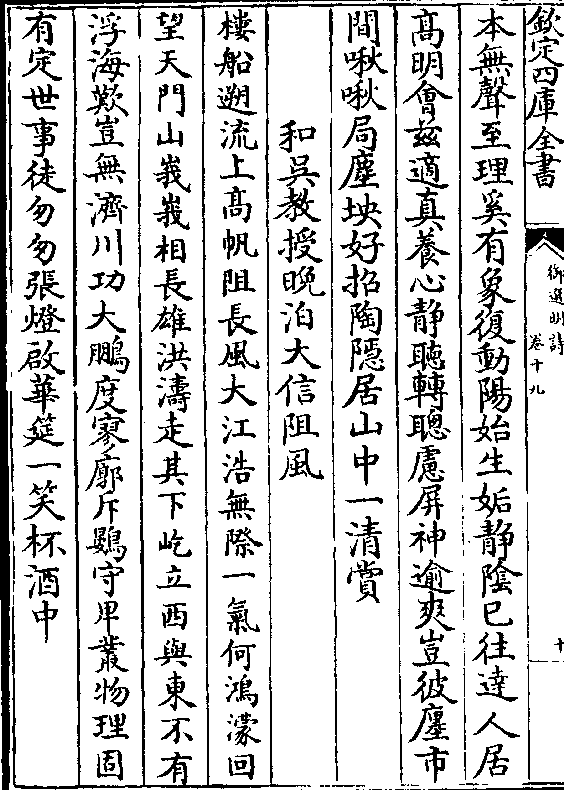 欽定四庫全書
御選明詩
卷十九
十
本無聲至理奚有象復動陽始生姤靜陰已往達人居
高明會兹適真養心静聴轉聰慮屏神逾爽豈彼廛市
間啾啾局塵坱好招陶隱居山中一清賞
和吳教授晩泊大信阻風
樓船遡流上高帆阻長風大江浩無際一氣何鴻濛回
望天門山峩峩相長雄洪濤走其下屹立西與東不有
浮海歎豈無濟川功大鵬度寥廓斥鷃守卑叢物理固
有定世事徒匆匆張燈啟華筵一笑杯酒中